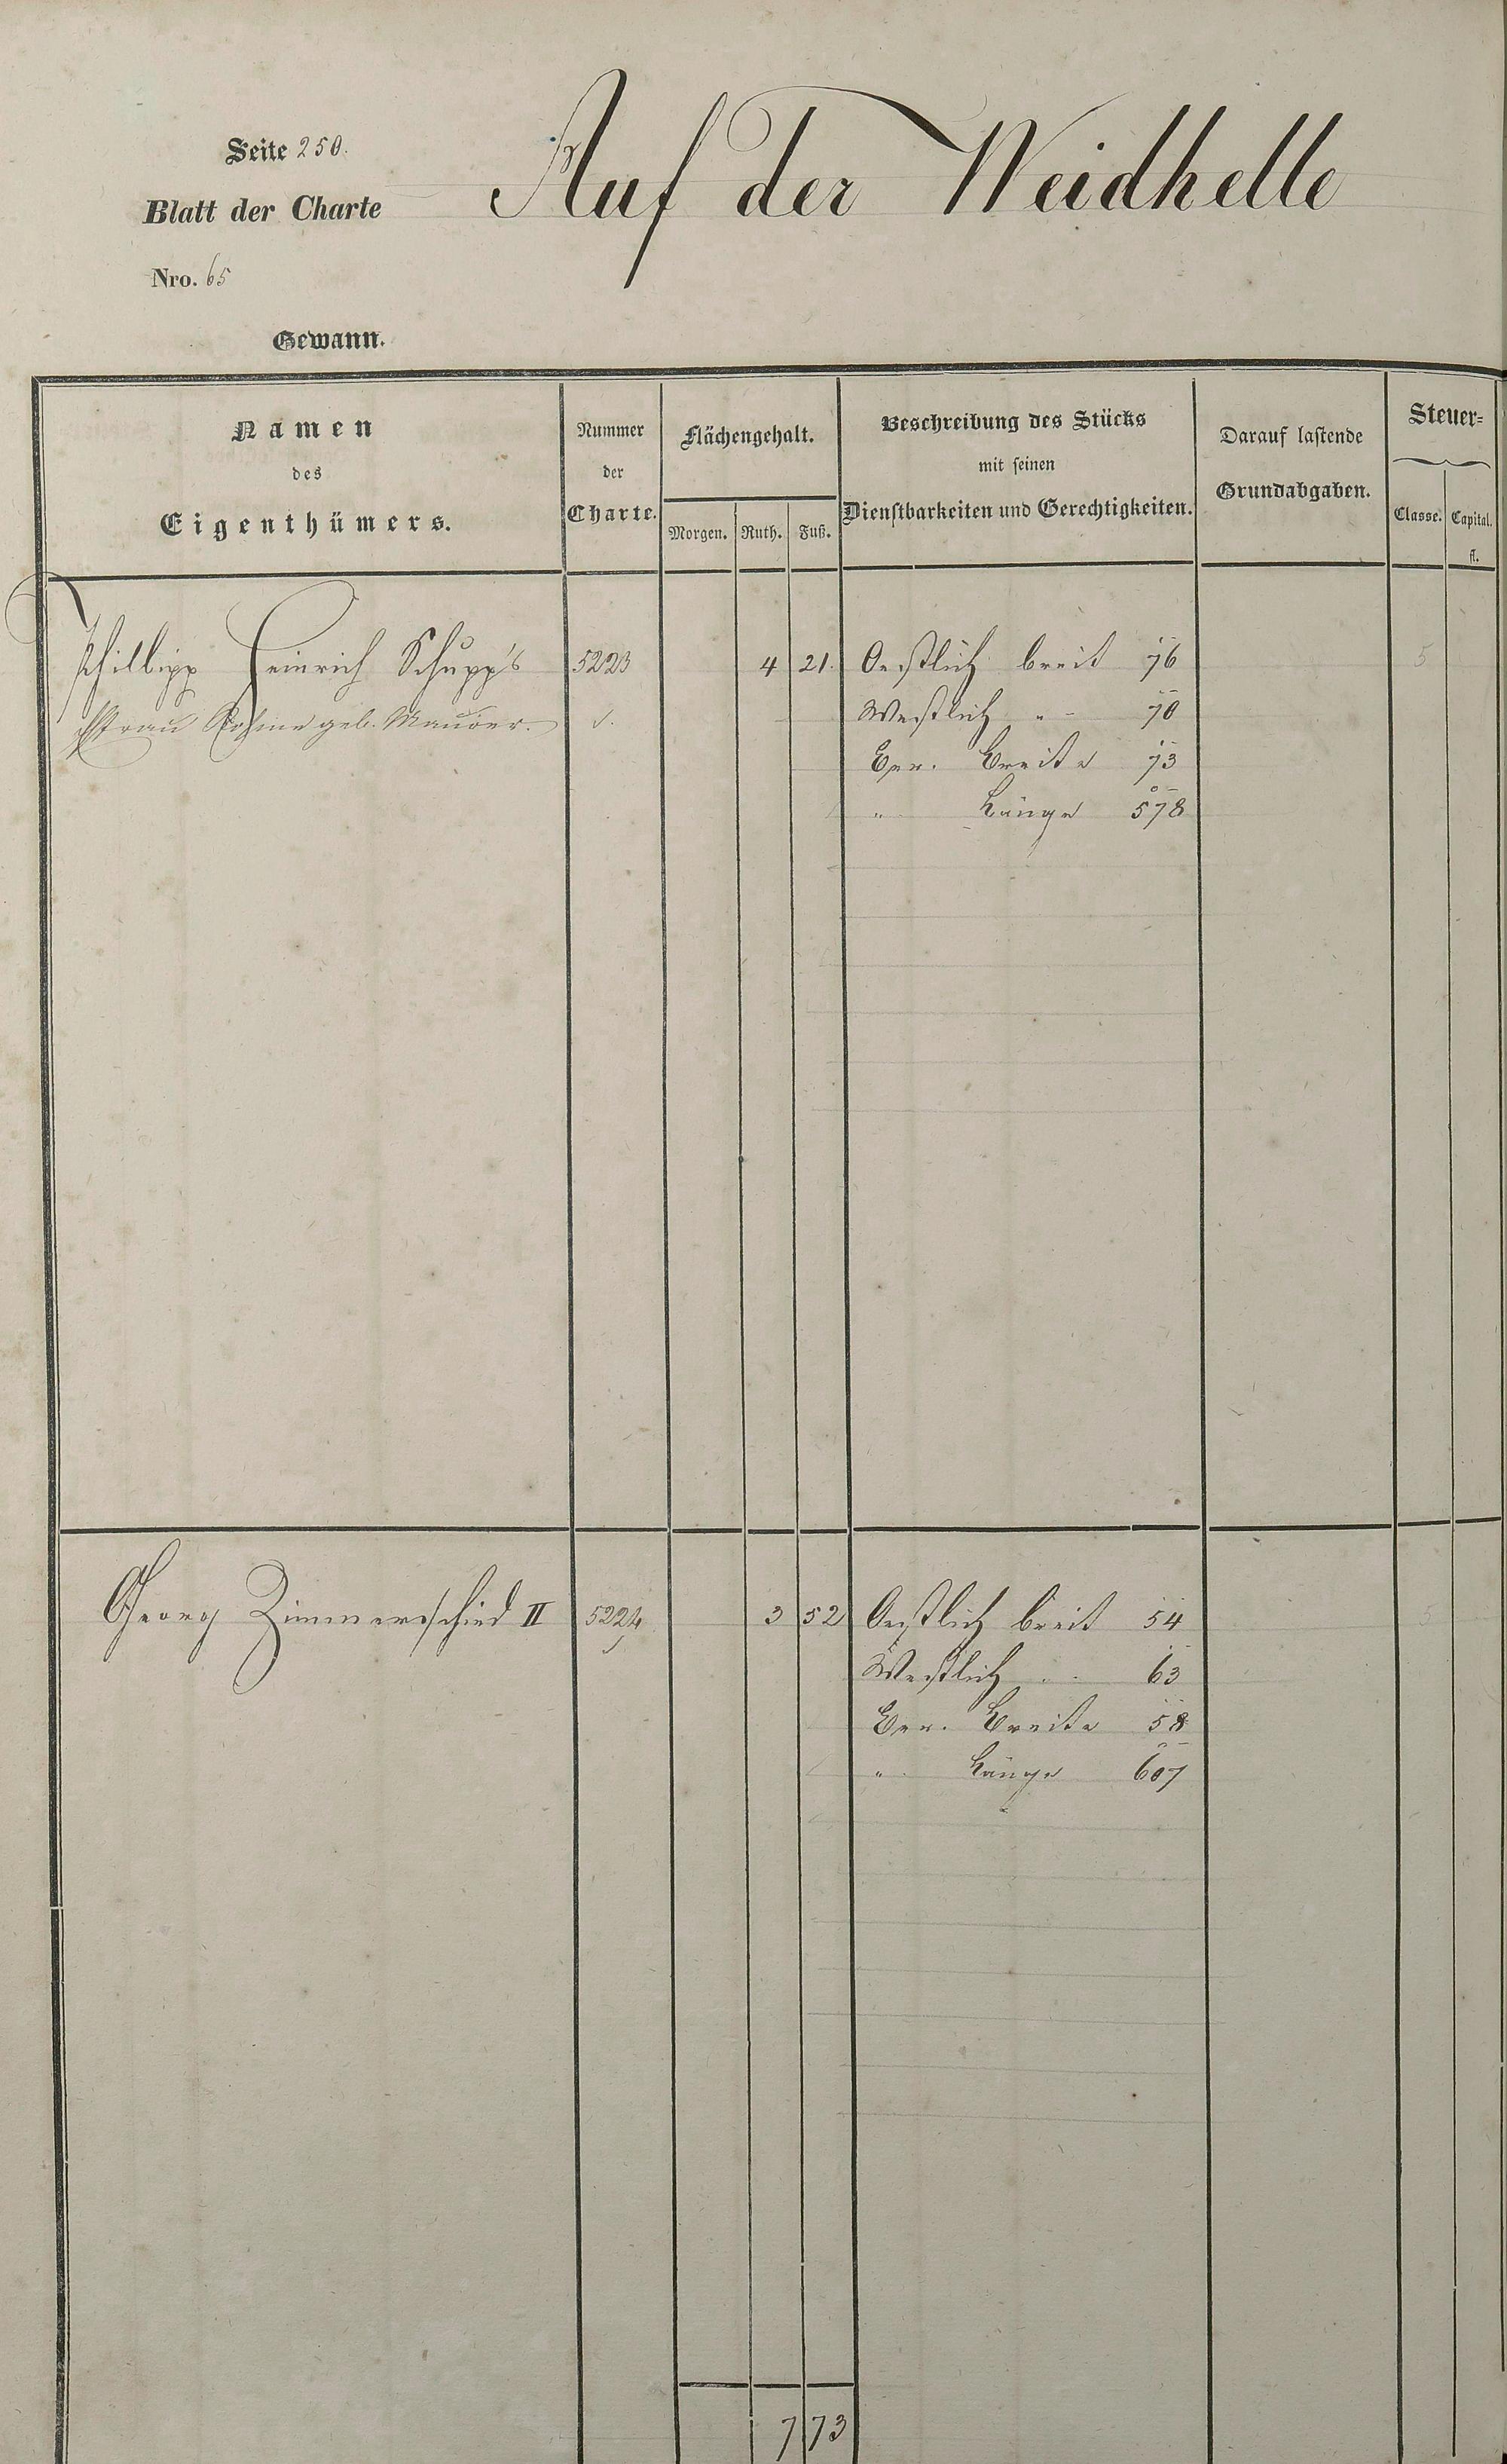 Seite 250.
Blatt der Charte
Nro. 65
Gewann.
Auf der Weidhelle
Namen
des
Eigenthümers.
Nummer
der
Charte.
Flächengehalt.
Morgen. Ruth. Fuß.
Beschreibung des Stücks
mit seinen
Dienstbarkeiten und Gerechtigkeiten.
Darauf lastende
Grundabgaben.
Steuer=
Classe. Capital.
fl.
Phillipp Heinrich Schupp's 5223 4 21. Oestlich breit 76 5
Frau geb. Maurer. Westlich " 70
Ger. Breite 73
" Länge 578
Georg Zimmerschied II 5224 3 52 Oestlich breit 54 5
Westlich " 63
Ger. Breite 58
" Länge 607
7 73